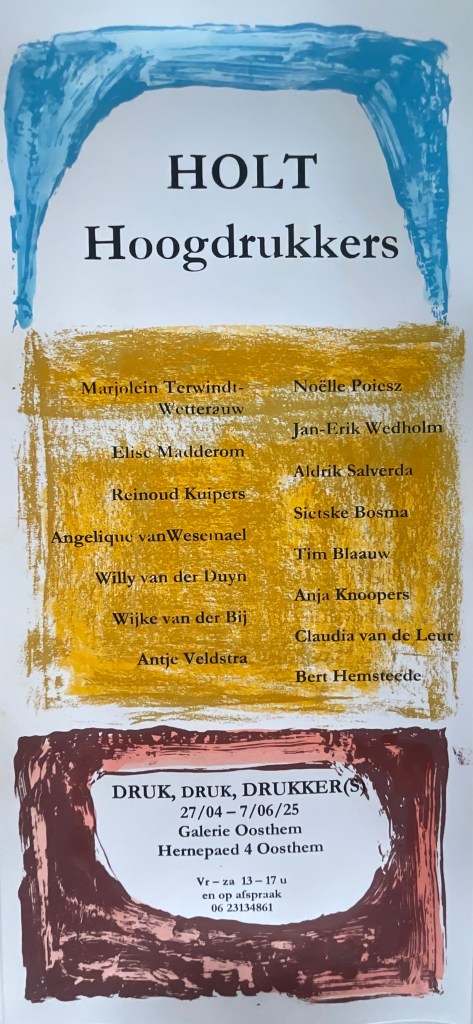 HOLT
Hoogdrukkers
Marjolein Terwindt-
Wetterauw
Elise Madderom
Reinoud Kuipers
Angelique vanWesemael
Willy van der Duyn
Wijke van der Bij
Antje Veldstra
Noëlle Poiesz
Jan-Erik Wedholm
Aldrik Salverda
Sietske Bosma
Tim Blaauw
Anja Knoopers
Claudia van de Leur
Bert Hemsteede
DRUK, DRUK, DRUKKER(S)
27/04 – 7/06/25
Galerie Oosthem
Hernepaed 4 Oosthem
Vr – za 13 – 17 u
en op afspraak
06 23134861